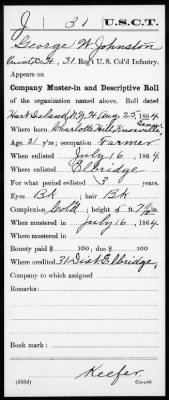 J | 31 | U.S.C.T.
George W Johnston
Private Co. H, 31 Reg't U.S. Col'd Infantry.
Appears on
Company Muster-in and Descriptive Roll
of the organization named above. Roll dated
Hart Island, N.Y.H Aug. 25, 1864.
Where born Charlotte Hill, Knoxville,
Age 21 y'rs; occupation Farmer
When enlisted July 16, 1864
Where enlisted Elbridge
For what period enlisted 3 years.
Eyes Bk ; hair Bk
Complexion Col'd ; height 5 ft. 7½ in.
When mustered in July 16, 1864
Where mustered in
Bounty paid $ 100; due $ 100
Where credited 31 Dist Elbridge,
Company to which assigned
Remarks:
Book mark:
Keefer
(356d) Copyist.